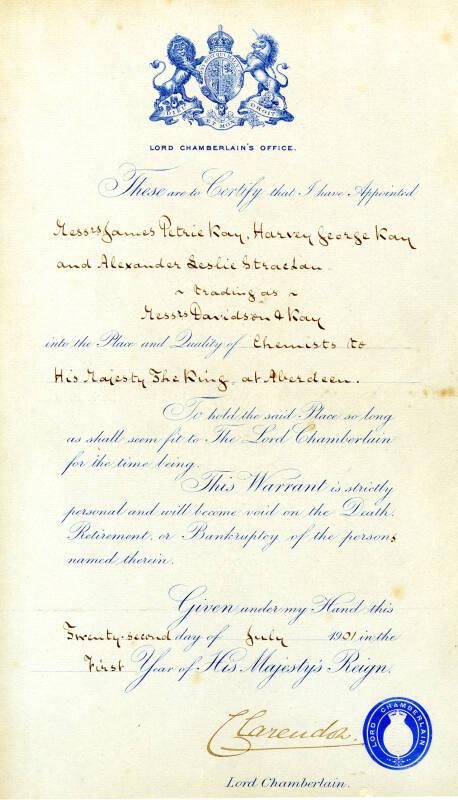 DIEU ET MON DROIT
LORD CHAMBERLAIN'S OFFICE.
These are to Certify that I have Appointed
Messrs James Petrie Kay, Harvey George Kay
and Alexander Leslie Strachan
~ trading as ~
Messrs Davidson & Kay
into the Place and Quality of Chemists to
His Majesty The King, at Aberdeen.
To hold the said Place so long
as shall seem fit to The Lord Chamberlain
for the time being.
This Warrant is strictly
personal and will become void on the Death,
Retirement, or Bankruptcy of the persons
named therein.
Given under my Hand this
Twenty-second day of July 1901 in the
First Year of His Majesty's Reign.
Clarendon.
LORD CHAMBERLAIN
Lord Chamberlain.